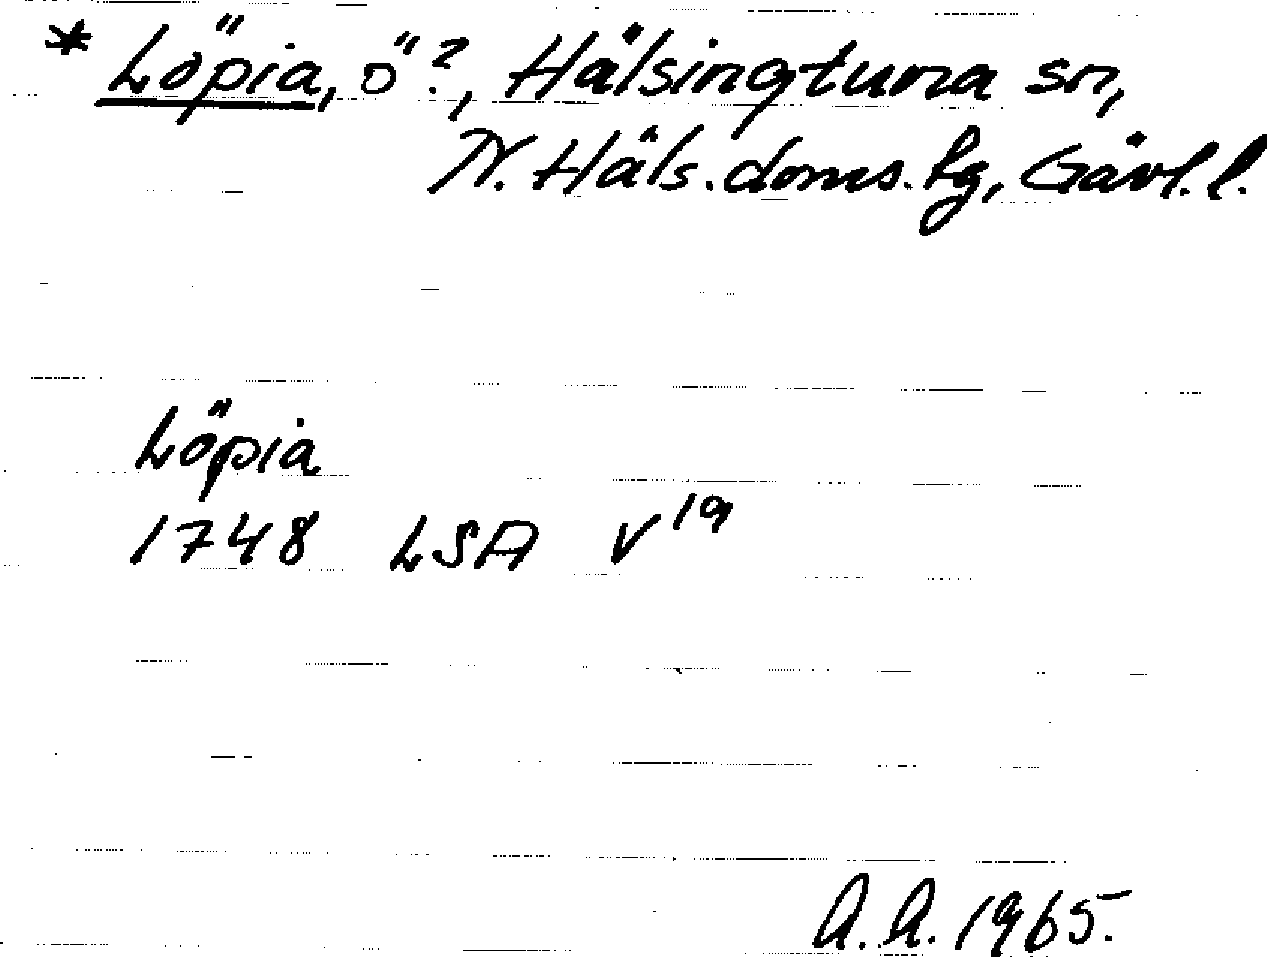 * Löpia, ö?, Hälsingtuna sn,
N. Häls. doms. fg, Gävl. l.
Löpia
1748 LSA V 19
A.A. 1965.